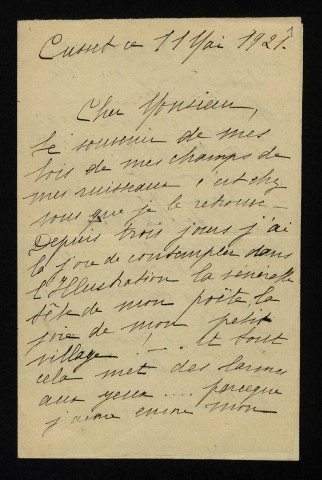 Cusset ce 11 Mai 1921.
Cher Monsieur,
Le souvenir de mes
bois de mes champs de
mes ruisseaux c'est chez
vous que je le retrouve —
Depuis trois jours j'ai
la joie de contempler dans
l'Illustration la
tête de mon poëte, la
joie de mon petit
village ! — et tout
cela met des larmes
aux yeux .... parceque
j'aime encore mon